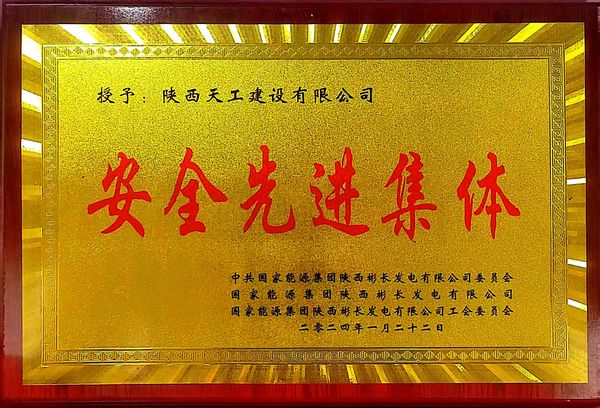 授予：陕西天工建设有限公司
安全先进集体
中共国家能源集团陕西彬长发电有限公司委员会
国家能源集团陕西彬长发电有限公司
国家能源集团陕西彬长发电有限公司工会委员会
二零二四年一月二十二日